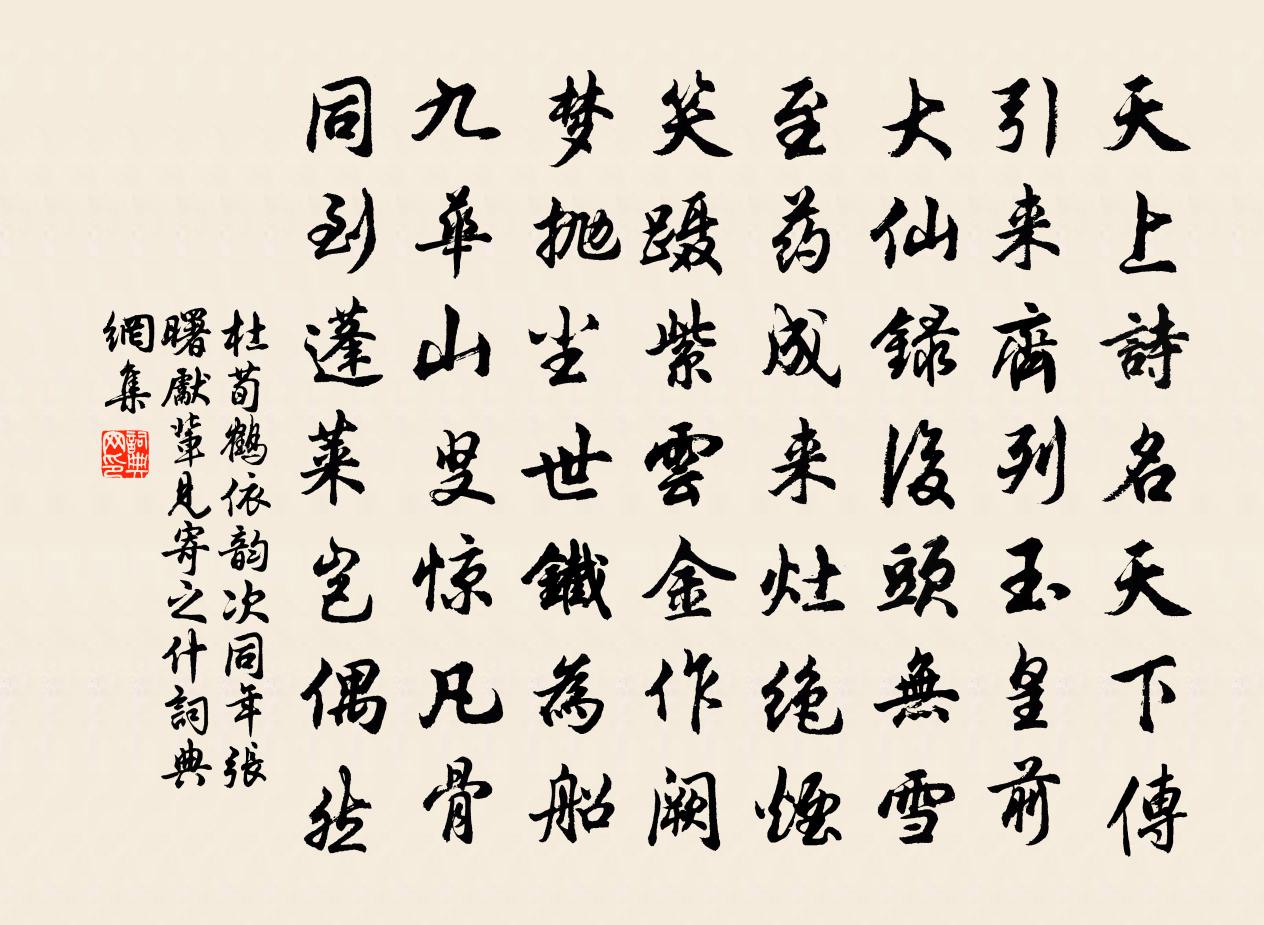 天上詩名天下傳
引来齊列玉皇前
大仙錄後頭無雪
至药成来灶绝煙
笑蹑紫雲金作阙
梦抛尘世鐵為船
九華山叟惊凡骨
同到蓬莱岂偶然
杜荀鶴依韵次同年張
曙獻輩見寄之什詞典
網集
詞典网印